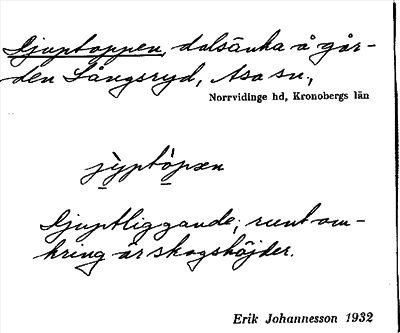 Djuptoppen, dalsänka å går-
den Långsryd, Asa sn.,
Norrvidinge hd, Kronobergs län
jyptòpen
Djuptliggande; runt om-
kring är skogshöjder.
Erik Johannesson 1932